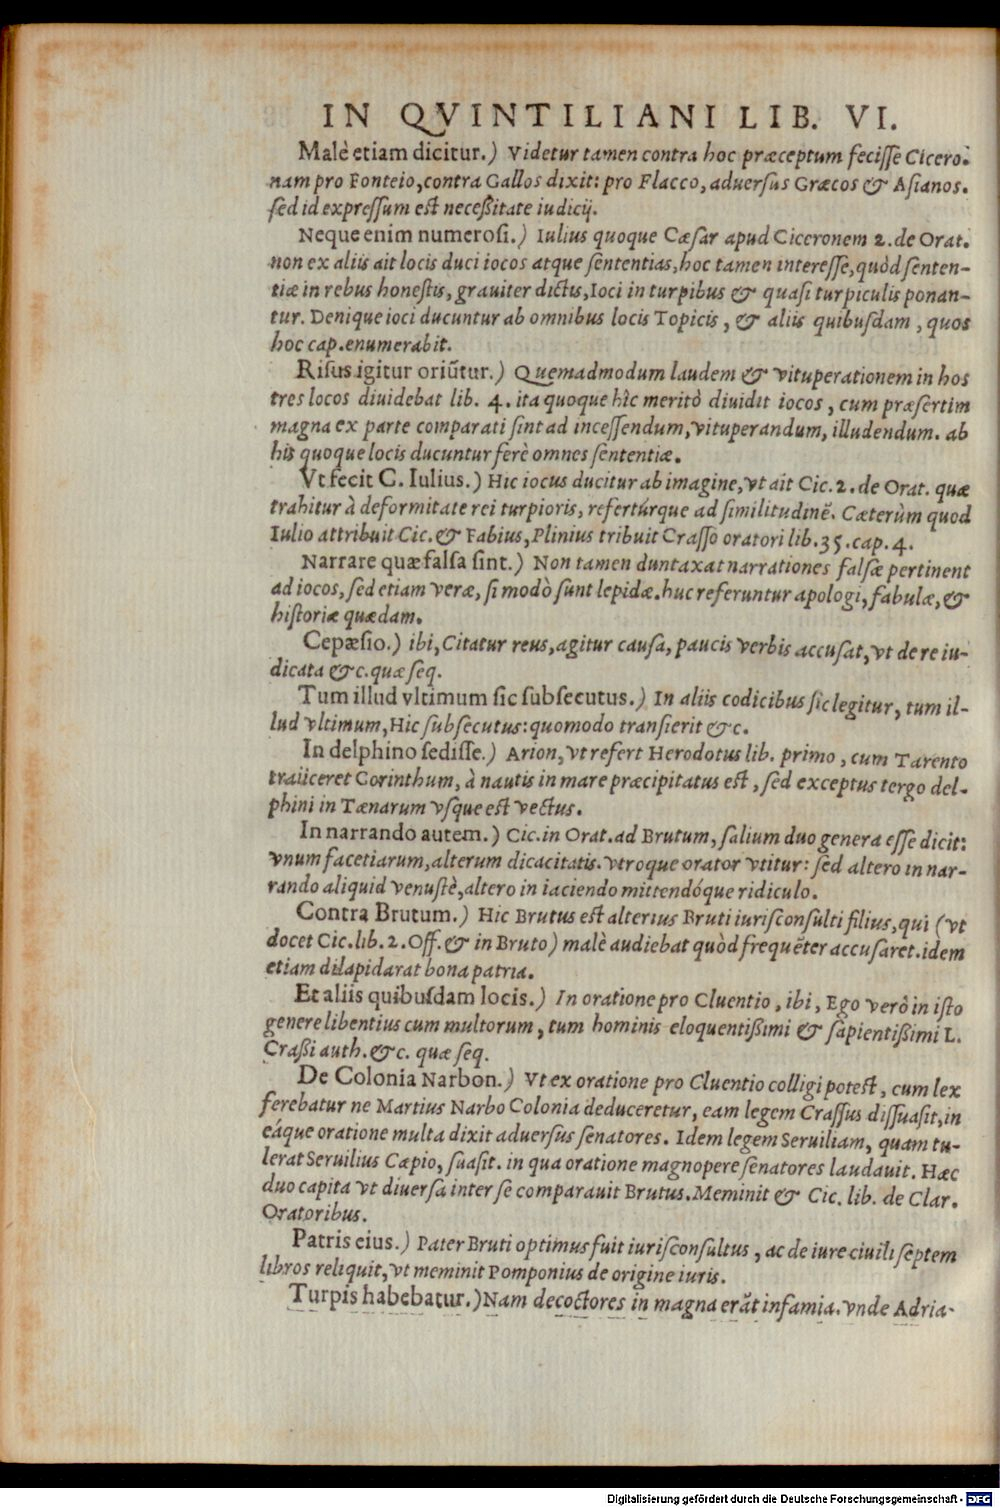 IN QVINTILIANI LIB. VI.
Malè etiam dicitur.) Videtur tamen contra hoc præceptum fecisse Cicero.
nam pro Fonteio, contra Gallos dixit: pro Flacco, aduersus Græcos & Asianos.
sed id expressum est necessitate iudicij.
Neque enim numerosi.) Iulius quoque Cæsar apud Ciceronem 2. de Orat.
non ex aliis ait locis duci iocos atque sententias, hoc tamen interesse, quòd senten-
tiæ in rebus honestis, grauiter dictis, Ioci in turpibus & quasi turpiculis ponan-
tur. Denique ioci ducuntur ab omnibus locis Topicis, & aliis quibusdam, quos
hoc cap. enumerabit.
Risus igitur oriũtur.) Quemadmodum laudem & vituperationem in hos
tres locos diuidebat lib. 4. ita quoque hîc meritò diuidit iocos, cum præsertim
magna ex parte comparati sint ad incessendum, vituperandum, illudendum. ab
his quoque locis ducuntur ferè omnes sententiæ.
Vt fecit C. Iulius.) Hic iocus ducitur ab imagine, vt ait Cic. 2. de Orat. quæ
trahitur à deformitate rei turpioris, refertúrque ad similitudinẽ. Cæterùm quod
Iulio attribuit Cic. & Fabius, Plinius tribuit Crasso oratori lib. 35. cap. 4.
Narrare quæ falsa sint.) Non tamen duntaxat narrationes falsæ pertinent
ad iocos, sed etiam veræ, si modò sunt lepidæ. huc referuntur apologi, fabulæ, &
historiæ quædam.
Cepæsio.) ibi, Citatur reus, agitur causa, paucis verbis accusat, vt de re iu-
dicata &c. quæ seq.
Tum illud vltimum sic subsecutus.) In aliis codicibus sic legitur, tum il-
lud vltimum, Hic subsecutus: quomodo transierit &c.
In delphino sedisse.) Arion, vt refert Herodotus lib. primo, cum Tarento
traiiceret Corinthum, à nautis in mare præcipitatus est, sed exceptus tergo del-
phini in Tænarum vsque est vectus.
In narrando autem.) Cic. in Orat. ad Brutum, salium duo genera esse dicit:
vnum facetiarum, alterum dicacitatis. vtroque orator vtitur: sed altero in nar-
rando aliquid venustè, altero in iaciendo mittendóque ridiculo.
Contra Brutum.) Hic Brutus est alterius Bruti iurisconsulti filius, qui (vt
docet Cic. lib. 2. Off. & in Bruto) malè audiebat quòd frequẽter accusaret. idem
etiam dilapidarat bona patria.
Et aliis quibusdam locis.) In oratione pro Cluentio, ibi, Ego verò in isto
genere libentius cum multorum, tum hominis eloquentissimi & sapientissimi L.
Crassi auth. &c. quæ seq.
De Colonia Narbon.) Vt ex oratione pro Cluentio colligi potest, cum lex
ferebatur ne Martius Narbo Colonia deduceretur, eam legem Crassus dissuasit, in
eáque oratione multa dixit aduersus senatores. Idem legem Seruiliam, quam tu-
lerat Seruilius Cæpio, suasit. in qua oratione magnopere senatores laudauit. Hæc
duo capita vt diuersa inter se comparauit Brutus. Meminit & Cic. lib. de Clar.
Oratoribus.
Patris eius.) Pater Bruti optimus fuit iurisconsultus, ac de iure ciuili septem
libros reliquit, vt meminit Pomponius de origine iuris.
Turpis habebatur.) Nam decoctores in magna erãt infamia. vnde Adria-
Digitalisierung gefördert durch die Deutsche Forschungsgemeinschaft - DFG